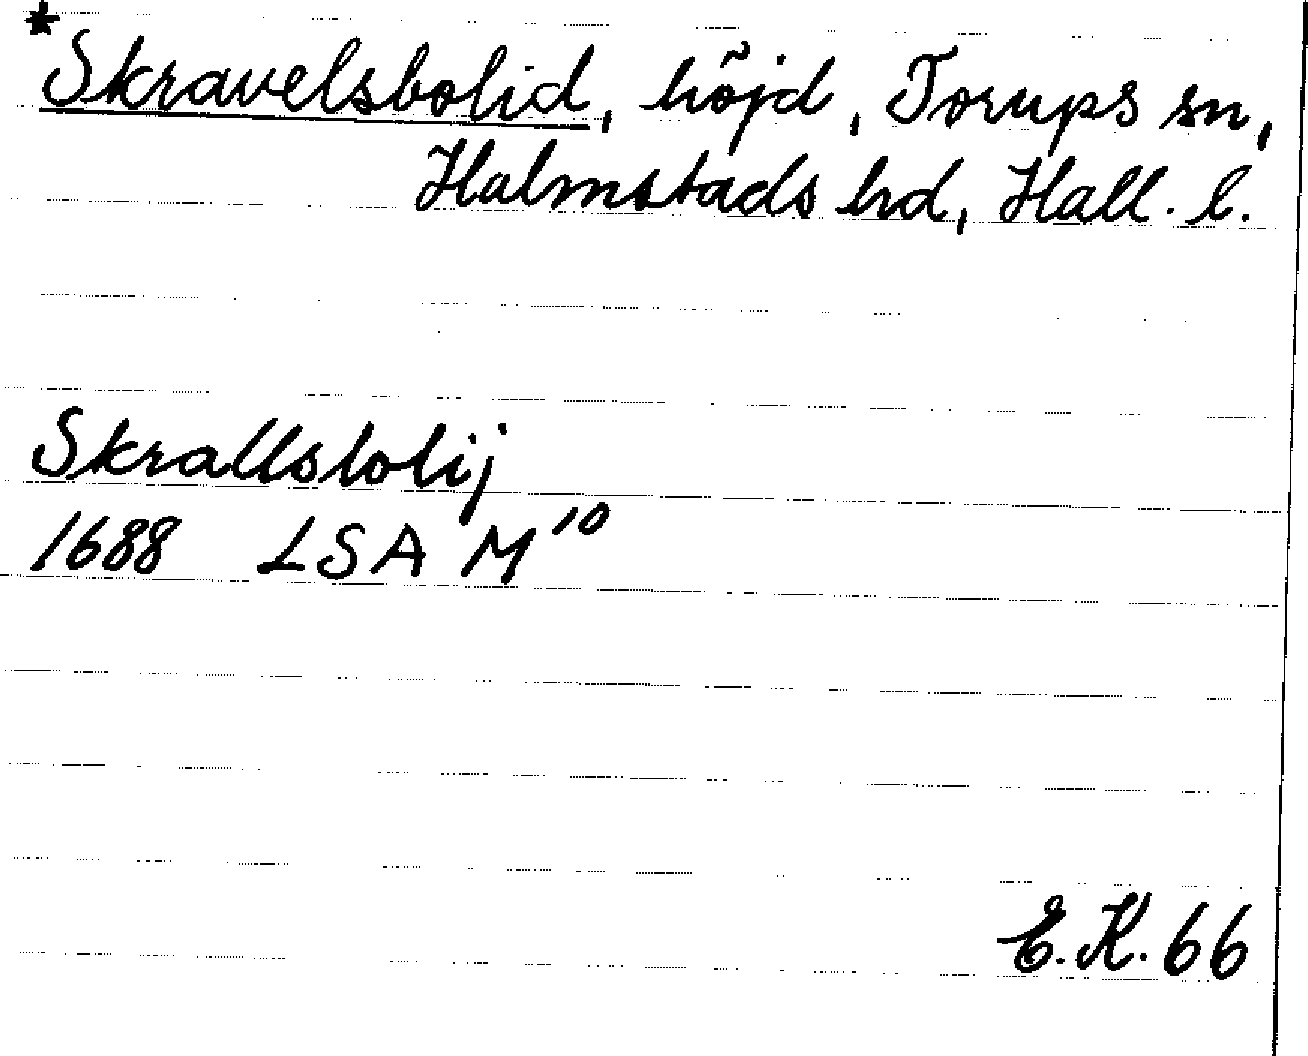 * Skravelsbolid, höjd, Torups sn,
Halmstads hd, Hall. l.
Skrallsbolij
1688 LSA M¹⁰
E.K. 66